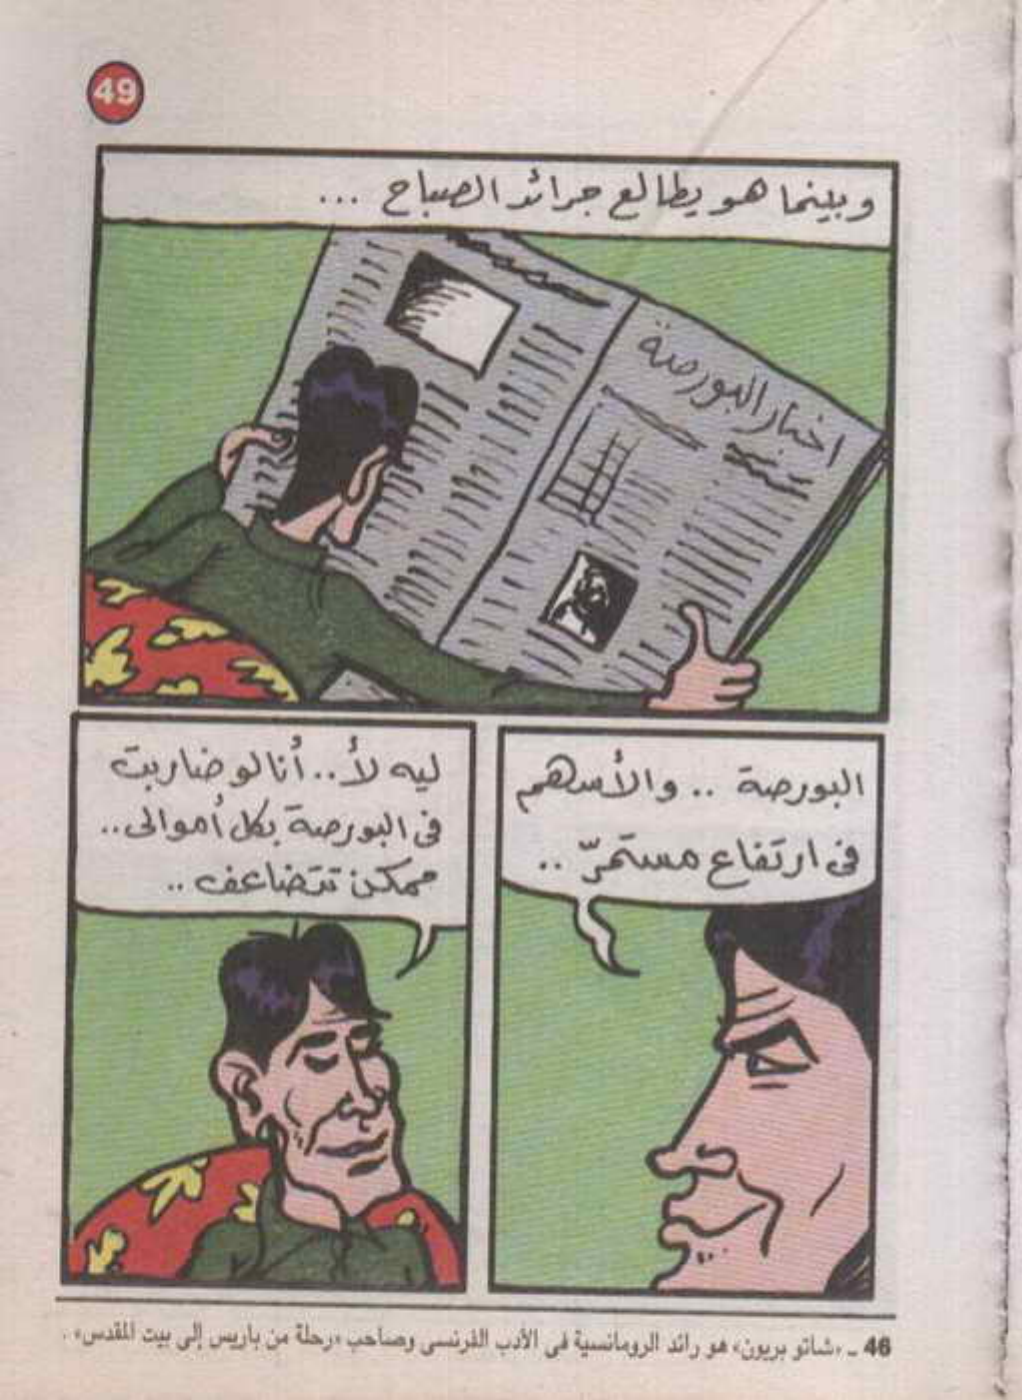 49
وبينما هو يطالع جرائد الصباح ...
اخبار البورصة
البورصة .. والأسهم
فى ارتفاع مستمرّ ..
ليه لأ.. أنا لو ضاربت
فى البورصة بكل أموالى..
ممكن تتضاعف ..
46 ـ «شاتو بريون» هو رائد الرومانسية فى الأدب الفرنسى وصاحب «رحلة من باريس إلى بيت المقدس» .